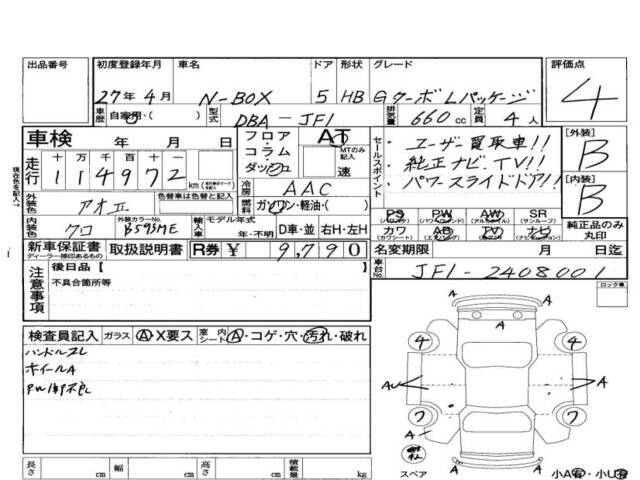 出品番号 初度登録年月 車名 ドア 形状 グレード 評価点
27年4月 N-BOX 5 HB Gターボ Lパッケージ 4
車歴 自家用・( ) 型式 DBA-JF1 排気量 660cc 定員 4人
車検 年 月 日
フロア・コラム・ダッシュ AT MTのみ記入 速
セールスポイント
・ユーザー買取車!!
・純正ナビ、TV!!
・パワースライドドア!!
[外装] B
[内装] B
走行 十 万 千 百 十 一 114972 km
冷房 AAC
外装色 アオII 色替車は色替と記入 燃料 ガソリン・軽油・( )
内装色 クロ 外装カラーNo. B593ME 輸入車 モデル年式 年・不明 D車・並 右H・左H
PS PW AW SR
カワ AB TV ナビ
純正品のみ丸印
新車保証書 ディーラー捺印あるもの 取扱説明書 R券 ¥ 9,790
名変期限 月 日迄
車台No. JF1-2408001
注意事項 後日品【 】
不具合箇所等
ロック車
検査員記入 ガラス A・X要ス 室内シート A・コゲ・穴・汚れ・破れ
ハンドルスレ
ホイールA
A
4 4
AU A A
7 7
A
スペア
小A ・小U
長さ cm 幅 cm 高さ cm 積載量 kg
現在色を記入→